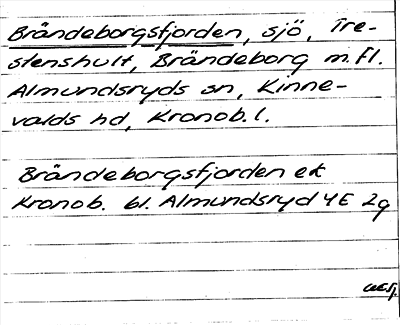 Brändeborgsfjorden, sjö, Tre-
stenshult, Brändeborg m.fl.
Almundsryds sn, Kinne-
valds hd, Kronob. l.
Brändeborgsfjorden ek
Kronob. bl. Almundsryd 4E 2g